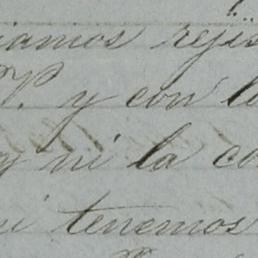 iamos rejis
P. y con lo
y ni la co
ni tenemos